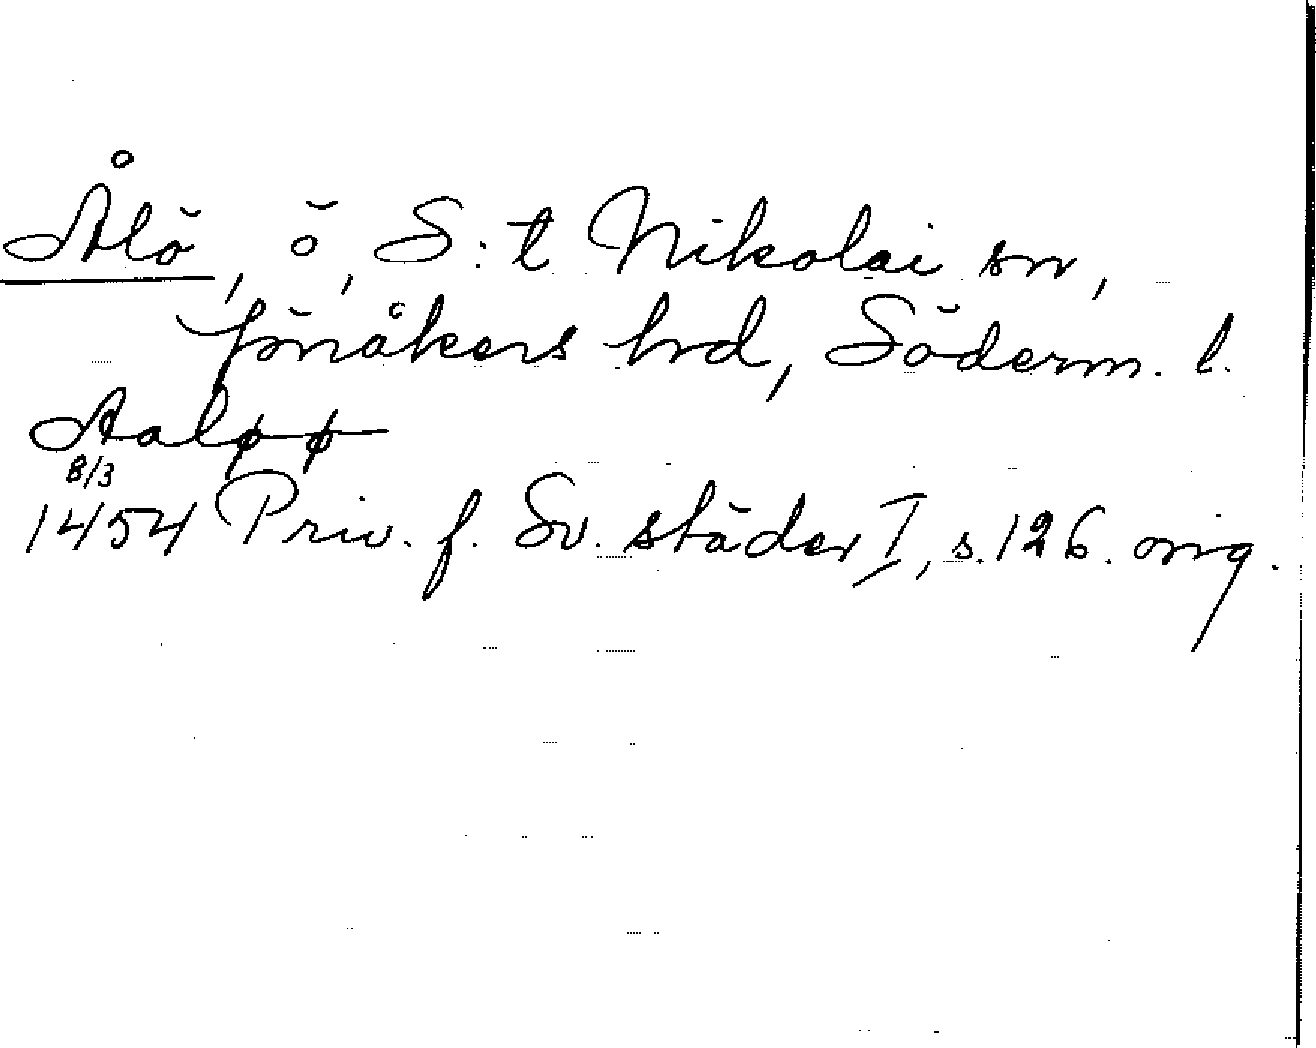 Ålö, ö, S:t Nikolai sn,
Jönåkers hd, Söderm. l.
Aaløø
8/3
1454 Priv. f. Sv. städer I, s. 126. orig.